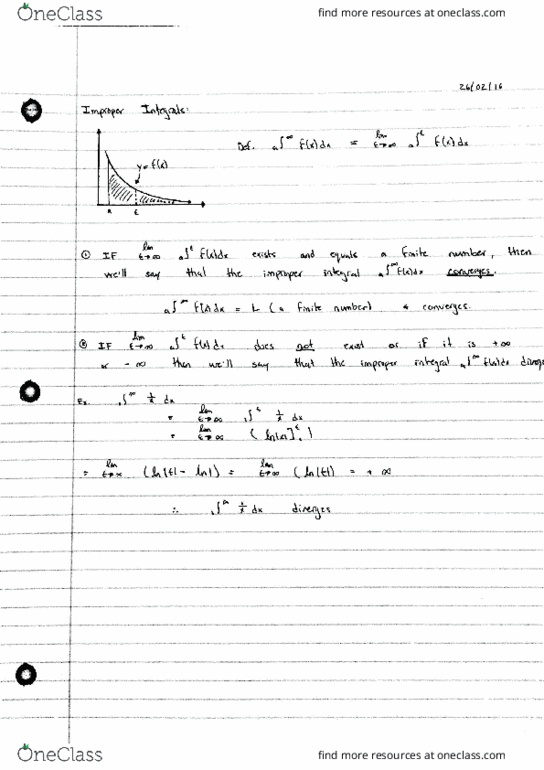 OneClass find more resources at oneclass.com
26/02/16
Improper Integrals:
Def. a∫^∞ f(x)dx = lim t→∞ a∫^t f(x)dx
y=f(x)
a t
① IF lim t→∞ a∫^t f(x)dx exists and equals a finite number, then
we'll say that the improper integral a∫^∞ f(x)dx converges.
a∫^∞ f(x)dx = L (a finite number) & converges.
② IF lim t→∞ a∫^t f(x)dx does not exist or if it is +∞
or -∞ then we'll say that the improper integral a∫^∞ f(x)dx diverge
Ex. 1∫^∞ 1/x dx
= lim t→∞ 1∫^t 1/x dx
= lim t→∞ (ln|x|]^t 1)
= lim t→∞ (ln|t| - ln1) = lim t→∞ (ln|t|) = +∞
∴ 1∫^∞ 1/x dx diverges
OneClass find more resources at oneclass.com